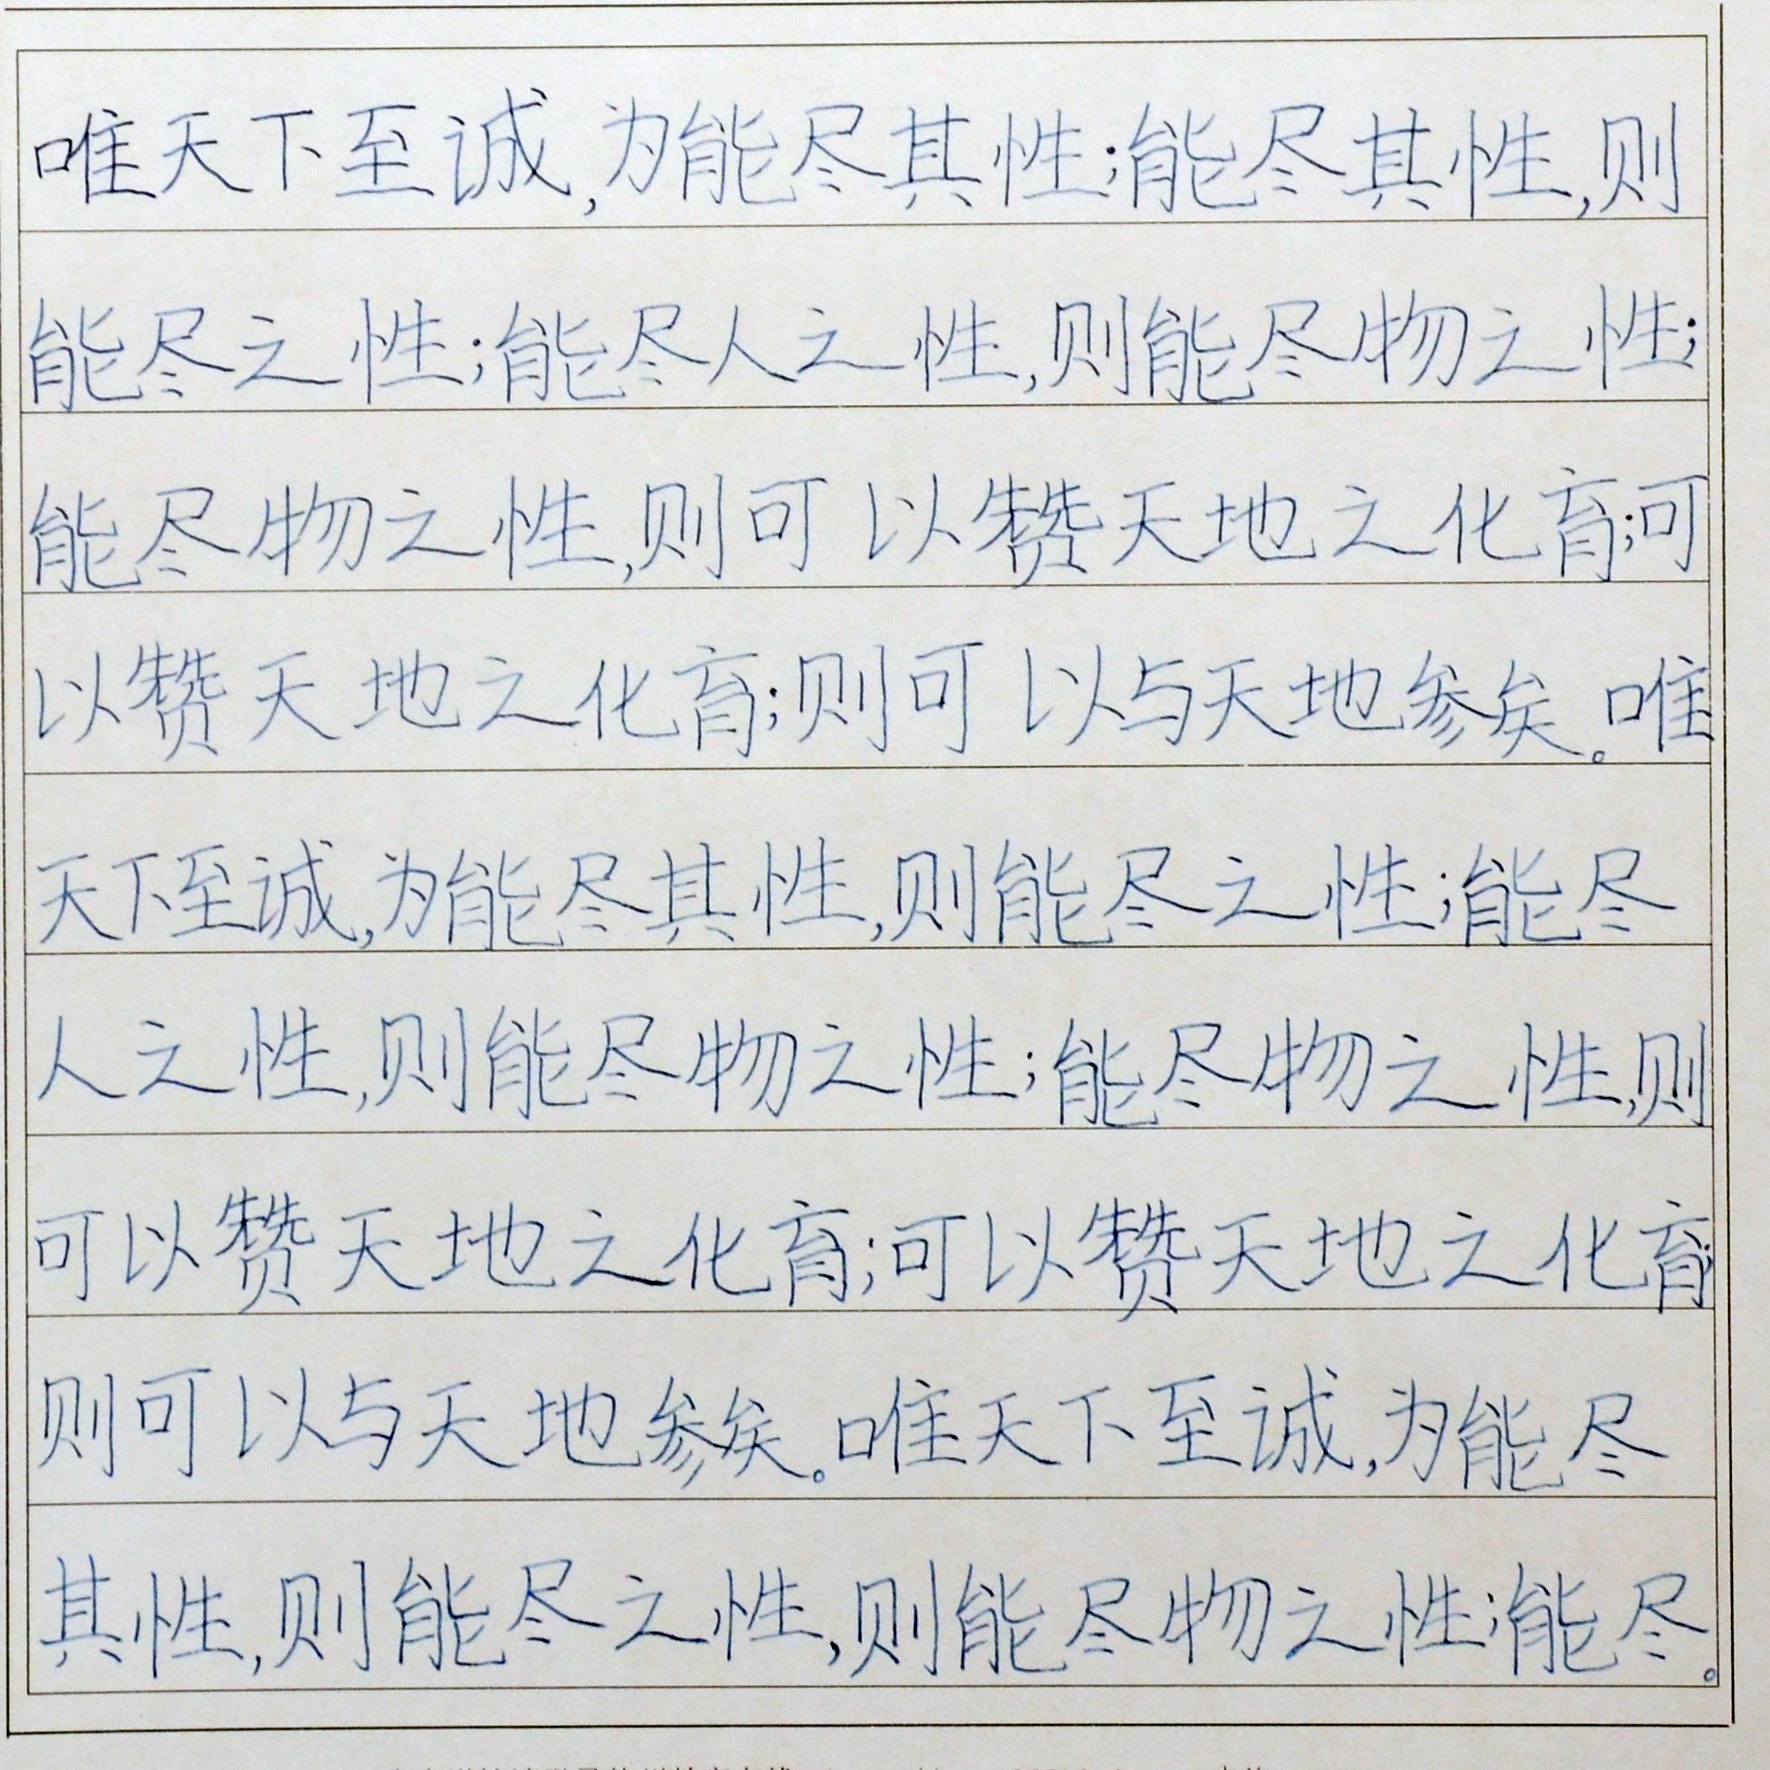 唯天下至诚,为能尽其性;能尽其性,则
能尽之性;能尽人之性,则能尽物之性;
能尽物之性,则可以赞天地之化育;可
以赞天地之化育;则可以与天地参矣。唯
天下至诚,为能尽其性,则能尽之性;能尽
人之性,则能尽物之性;能尽物之性,则
可以赞天地之化育;可以赞天地之化育;
则可以与天地参矣。唯天下至诚,为能尽
其性,则能尽之性,则能尽物之性;能尽。